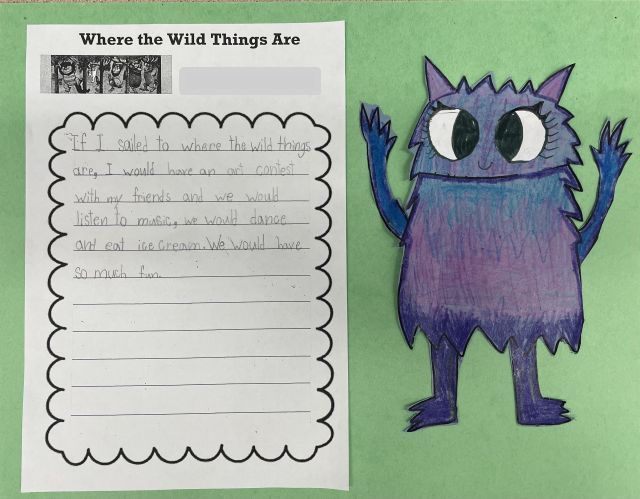 Where the Wild Things Are
If I sailed to where the wild things
are, I would have an art contest
with my friends and we would
listen to music, we would dance
and eat ice cream. We would have
so much fun.